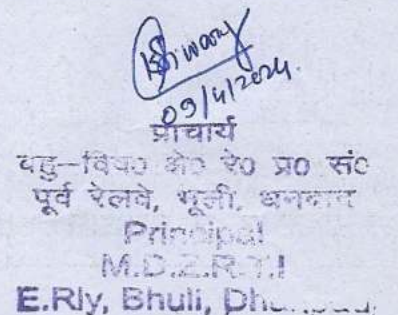 09/4/2024.
प्राचार्य
बहु-विष० क्षे० रे० प्र० सं०
पूर्व रेलवे, भूली, धनबाद
Principal
M.D.Z.R.T.I
E.Rly, Bhuli,